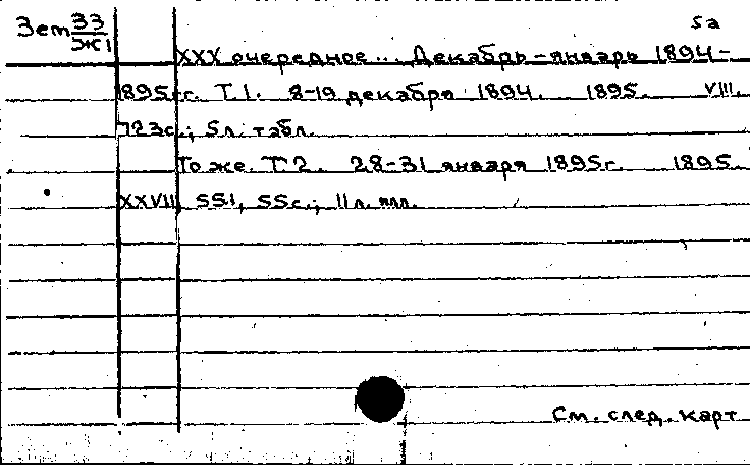 Зем 33/Ж1
5а
XXX очередное... Декабрь-январь 1894-
1895 гг. Т.1. 8-19 декабря 1894. 1895. VIII,
723с.; 5л. табл.
То же. Т.2. 28-31 января 1895г. 1895.
XXVII, 551, 55с.; 11л. илл.
См. след. карт